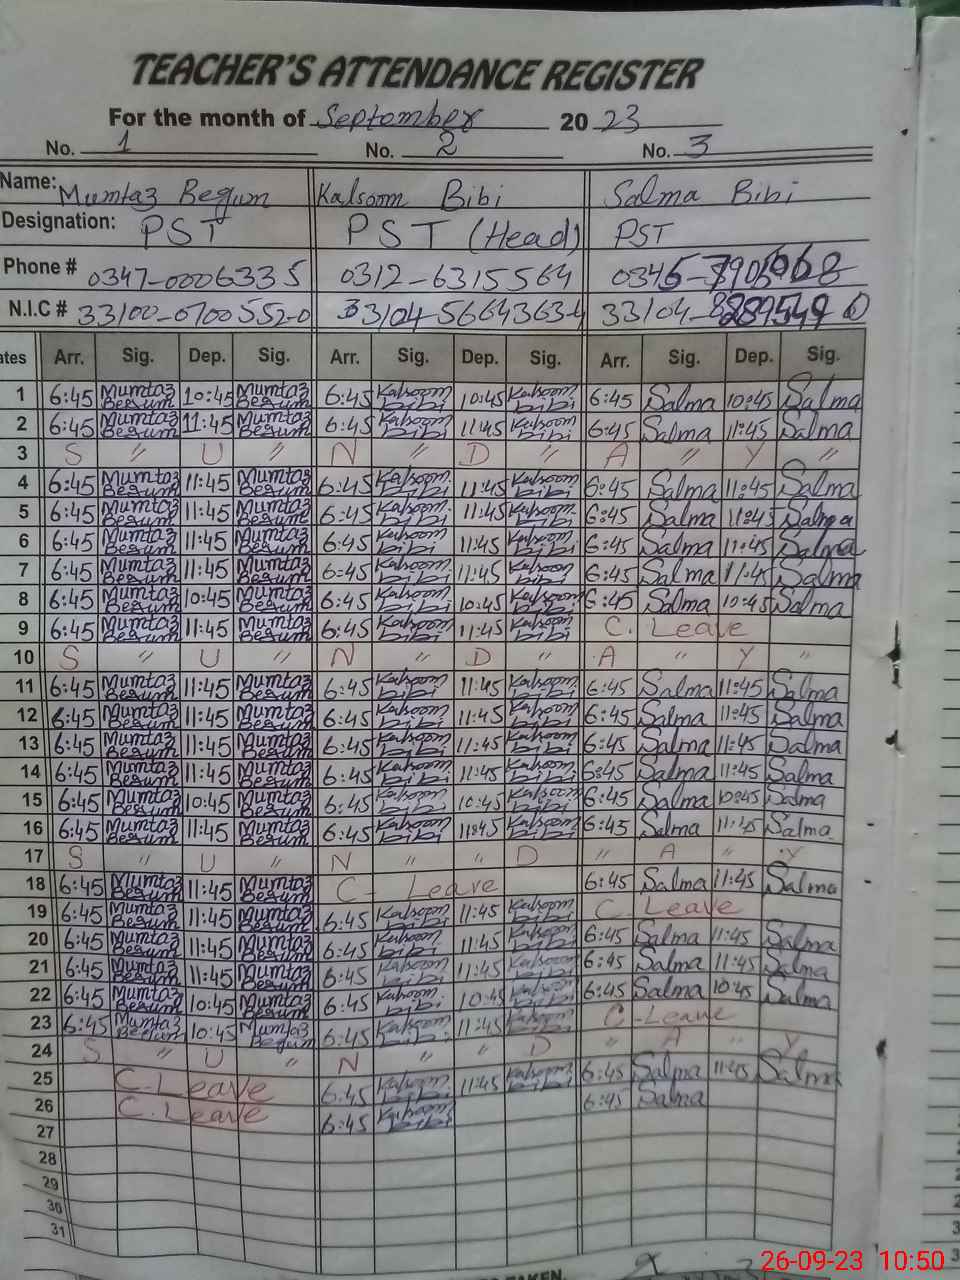 TEACHER'S ATTENDANCE REGISTER
For the month of September 20 23
No. 1 No. 2 No. 3
Name: Mumtaz Begum Kalsoom Bibi Salma Bibi
Designation: PST PST (Head) PST
Phone # 0347-0006335 0312-6315564
N.I.C # 33100-0700552-0 33104-5664363-4 33104-
Arr. Sig. Dep. Sig. Arr. Sig. Dep. Sig. Arr. Sig. Dep. Sig.
1 6:45 Mumtaz Begum 10:45 Mumtaz Begum 6:45 Kalsoom bibi 10:45 Kalsoom bibi 6:45 Salma 10:45 Salma
2 6:45 Mumtaz Begum 11:45 Mumtaz Begum 6:45 Kalsoom bibi 11:45 Kalsoom bibi 6:45 Salma 11:45 Salma
3 S " U " N D " A " Y "
4 6:45 Mumtaz Begum 11:45 Mumtaz Begum 6:45 Kalsoom bibi 11:45 Kalsoom bibi 6:45 Salma 11:45 Salma
5 6:45 Mumtaz Begum 11:45 Mumtaz Begum 6:45 Kalsoom bibi 11:45 Kalsoom bibi 6:45 Salma 11:45 Salma
6 6:45 Mumtaz Begum 11:45 Mumtaz Begum 6:45 Kalsoom bibi 11:45 Kalsoom bibi 6:45 Salma 11:45 Salma
7 6:45 Mumtaz Begum 11:45 Mumtaz Begum 6:45 Kalsoom bibi 11:45 Kalsoom bibi 6:45 Salma 11:45 Salma
8 6:45 Mumtaz Begum 10:45 Mumtaz Begum 6:45 Kalsoom bibi 10:45 Kalsoom bibi 6:45 Salma 10:45 Salma
9 6:45 Mumtaz Begum 11:45 Mumtaz Begum 6:45 Kalsoom bibi 11:45 Kalsoom bibi C. Leave
10 S " U " N " D " A " Y "
11 6:45 Mumtaz Begum 11:45 Mumtaz Begum 6:45 Kalsoom bibi 11:45 Kalsoom bibi 6:45 Salma 11:45 Salma
12 6:45 Mumtaz Begum 11:45 Mumtaz Begum 6:45 Kalsoom bibi 11:45 Kalsoom bibi 6:45 Salma 11:45 Salma
13 6:45 Mumtaz Begum 11:45 Mumtaz Begum 6:45 Kalsoom bibi 11:45 Kalsoom bibi 6:45 Salma 11:45 Salma
14 6:45 Mumtaz Begum 11:45 Mumtaz Begum 6:45 Kalsoom bibi 11:45 Kalsoom bibi 6:45 Salma 11:45 Salma
15 6:45 Mumtaz Begum 10:45 Mumtaz Begum 6:45 Kalsoom bibi 10:45 Kalsoom bibi 6:45 Salma 10:45 Salma
16 6:45 Mumtaz Begum 11:45 Mumtaz Begum 6:45 Kalsoom bibi 11:45 Kalsoom bibi 6:45 Salma 11:45 Salma
17 S " U " N " " D " A " Y
18 6:45 Mumtaz Begum 11:45 Mumtaz Begum C- Leave 6:45 Salma 11:45 Salma
19 6:45 Mumtaz Begum 11:45 Mumtaz Begum 6:45 Kalsoom bibi 11:45 Kalsoom bibi C. Leave
20 6:45 Mumtaz Begum 11:45 Mumtaz Begum 6:45 Kalsoom bibi 11:45 Kalsoom bibi 6:45 Salma 11:45 Salma
21 6:45 Mumtaz Begum 11:45 Mumtaz Begum 6:45 Kalsoom bibi 11:45 Kalsoom bibi 6:45 Salma 11:45 Salma
22 6:45 Mumtaz Begum 10:45 Mumtaz Begum 6:45 Kalsoom bibi 10:45 Kalsoom bibi 6:45 Salma 10:45 Salma
23 6:45 Mumtaz Begum 10:45 Mumtaz Begum 6:45 Kalsoom bibi 11:45 Kalsoom bibi C-Leave
24 S " U " N " " D " A " Y
25 C. Leave 6:45 Kalsoom bibi 11:45 Kalsoom bibi 6:45 Salma 11:45 Salma
26 C. Leave 6:45 Kalsoom bibi 6:45 Salma
27
28
29
30
31
26-09-23 10:50